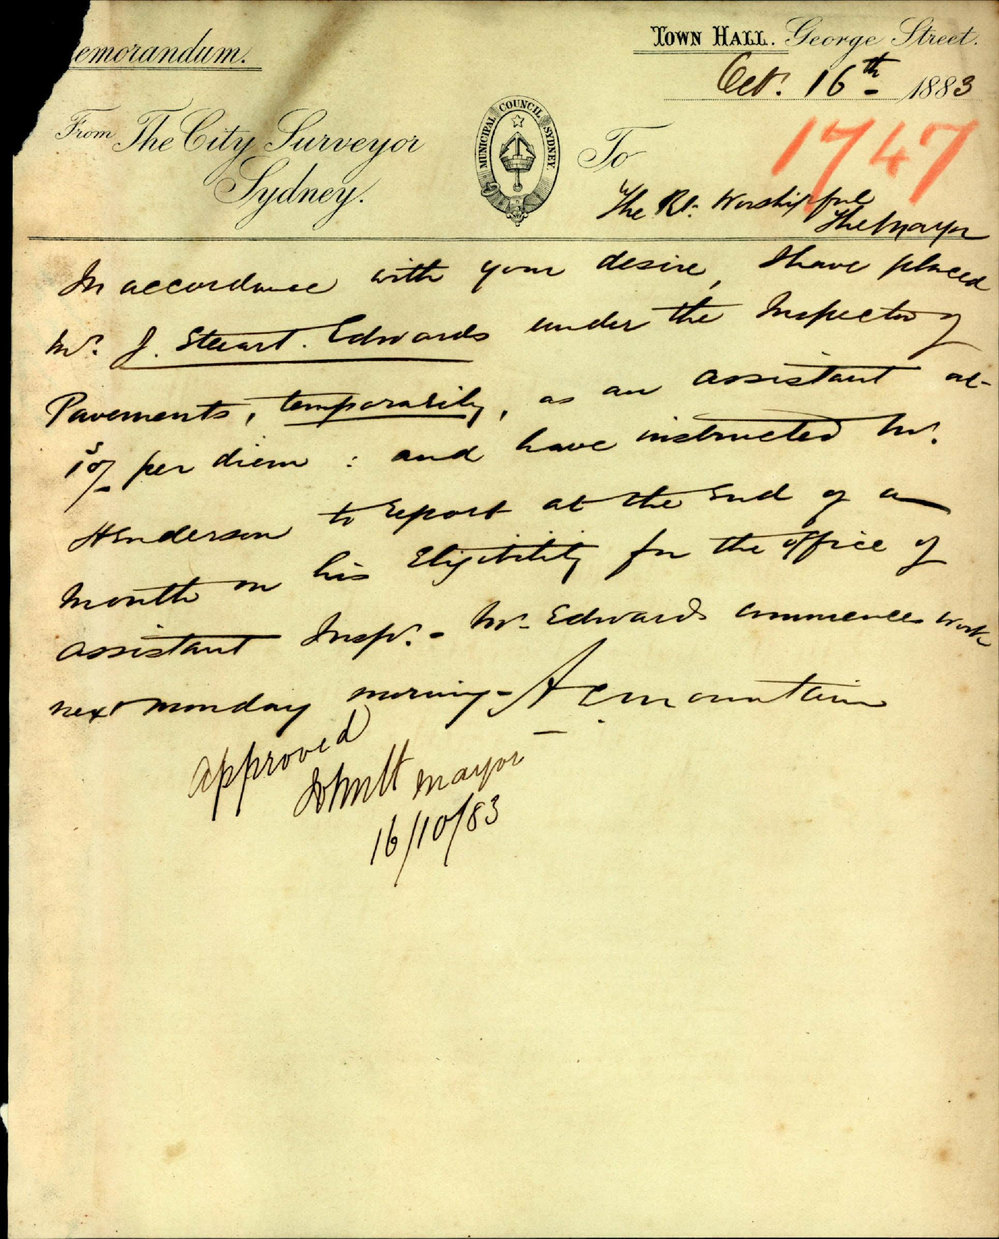 emorandum.
TOWN HALL. George Street.
Oct. 16th 1883
From The City Surveyor
Sydney.
MUNICIPAL COUNCIL SYDNEY
To
1747
The Rt. Worshipful
The Mayor
In accordance with your desire, I have placed
Mr. J. Steuart. Edwards under the Inspector of
Pavements, temporarily, as an assistant at
10s/- per diem : and have instructed Mr.
Henderson to report at the End of a
Month on his Eligibility for the office of
assistant Inspr. - Mr. Edwards commences work
next Monday morning - A C Mountain
Approved
Mayor
16/10/83